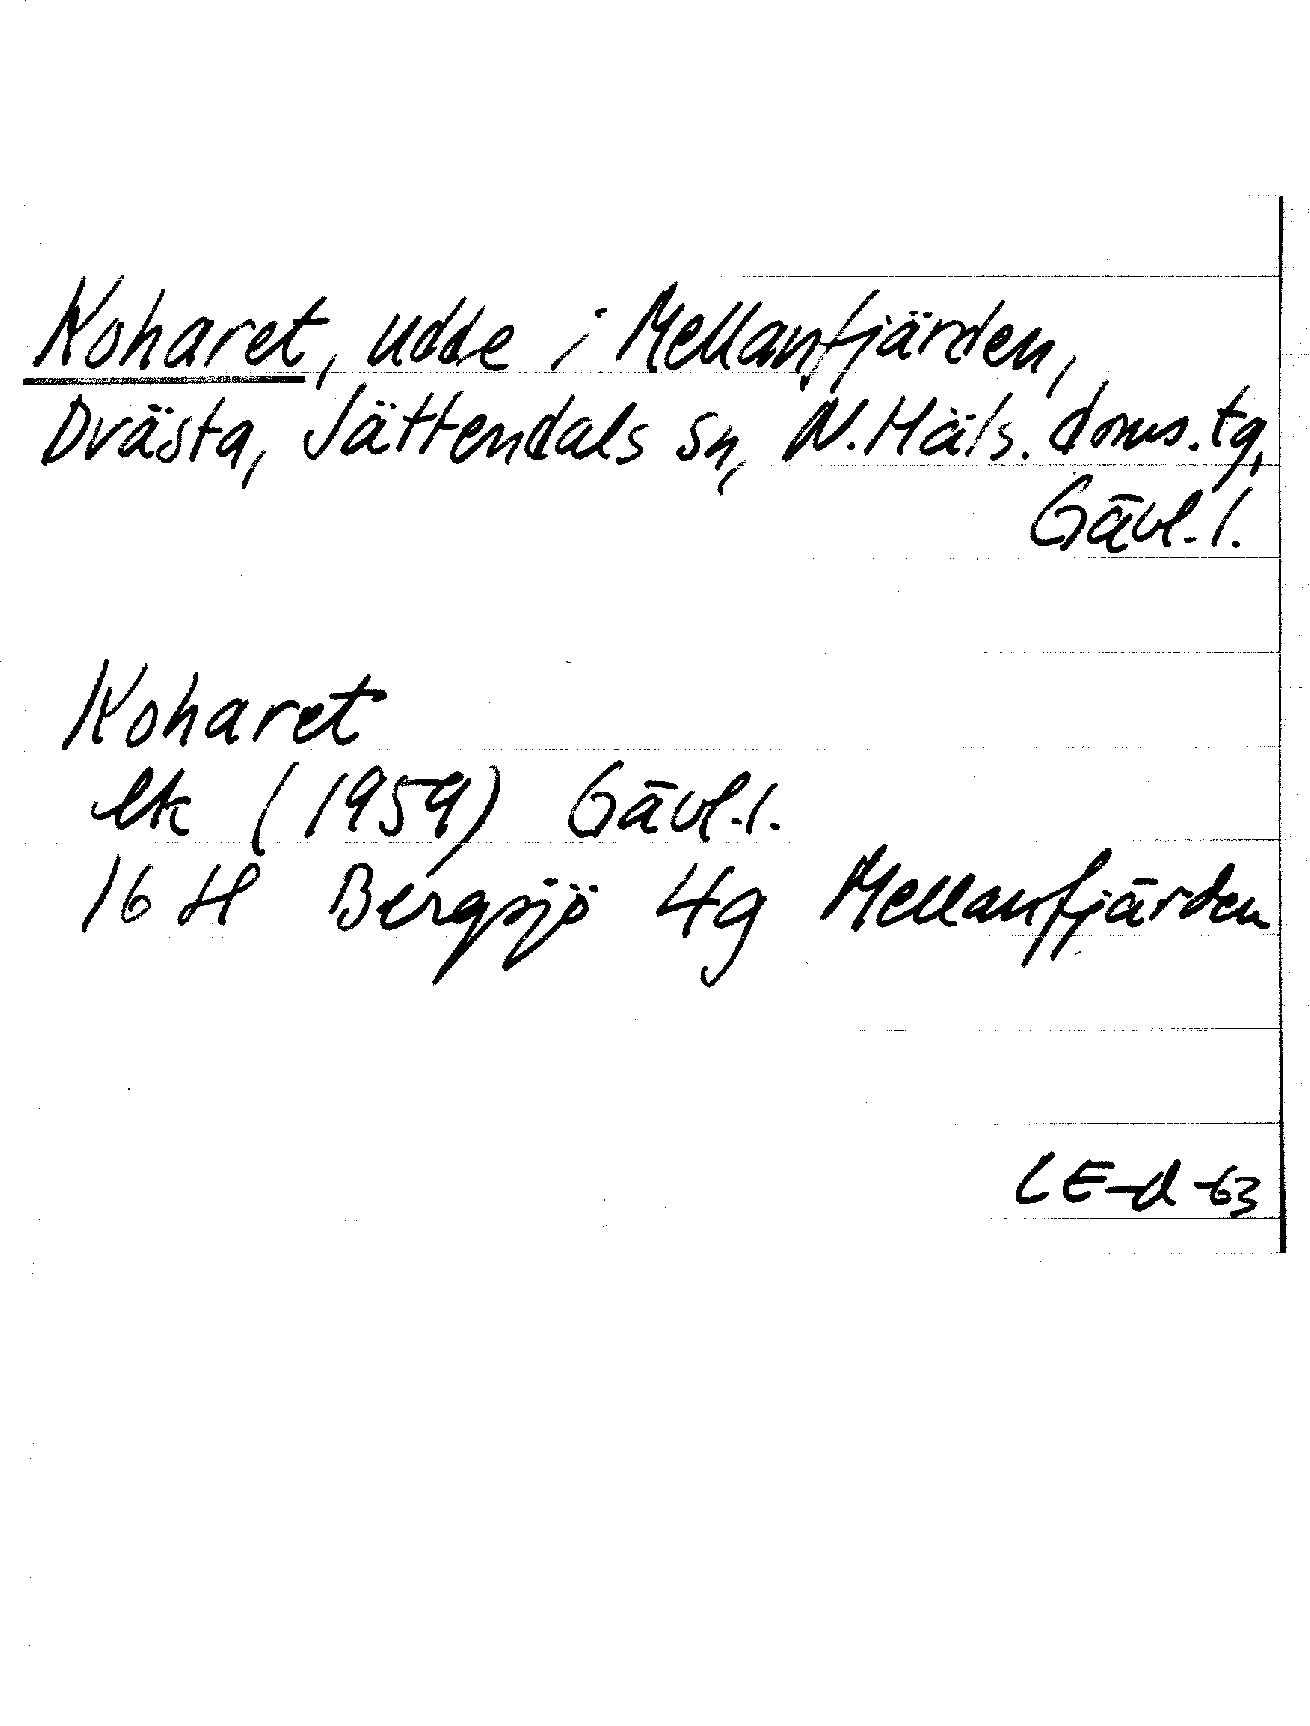 Koharet, udde i Mellanfjärden,
Drästa, Jättendals sn, N. Häls. doms. tg,
Gävl. l.
Koharet
ek (1959) Gävl. l.
16 H Bergsjö 4g Mellanfjärden
LE-d-63